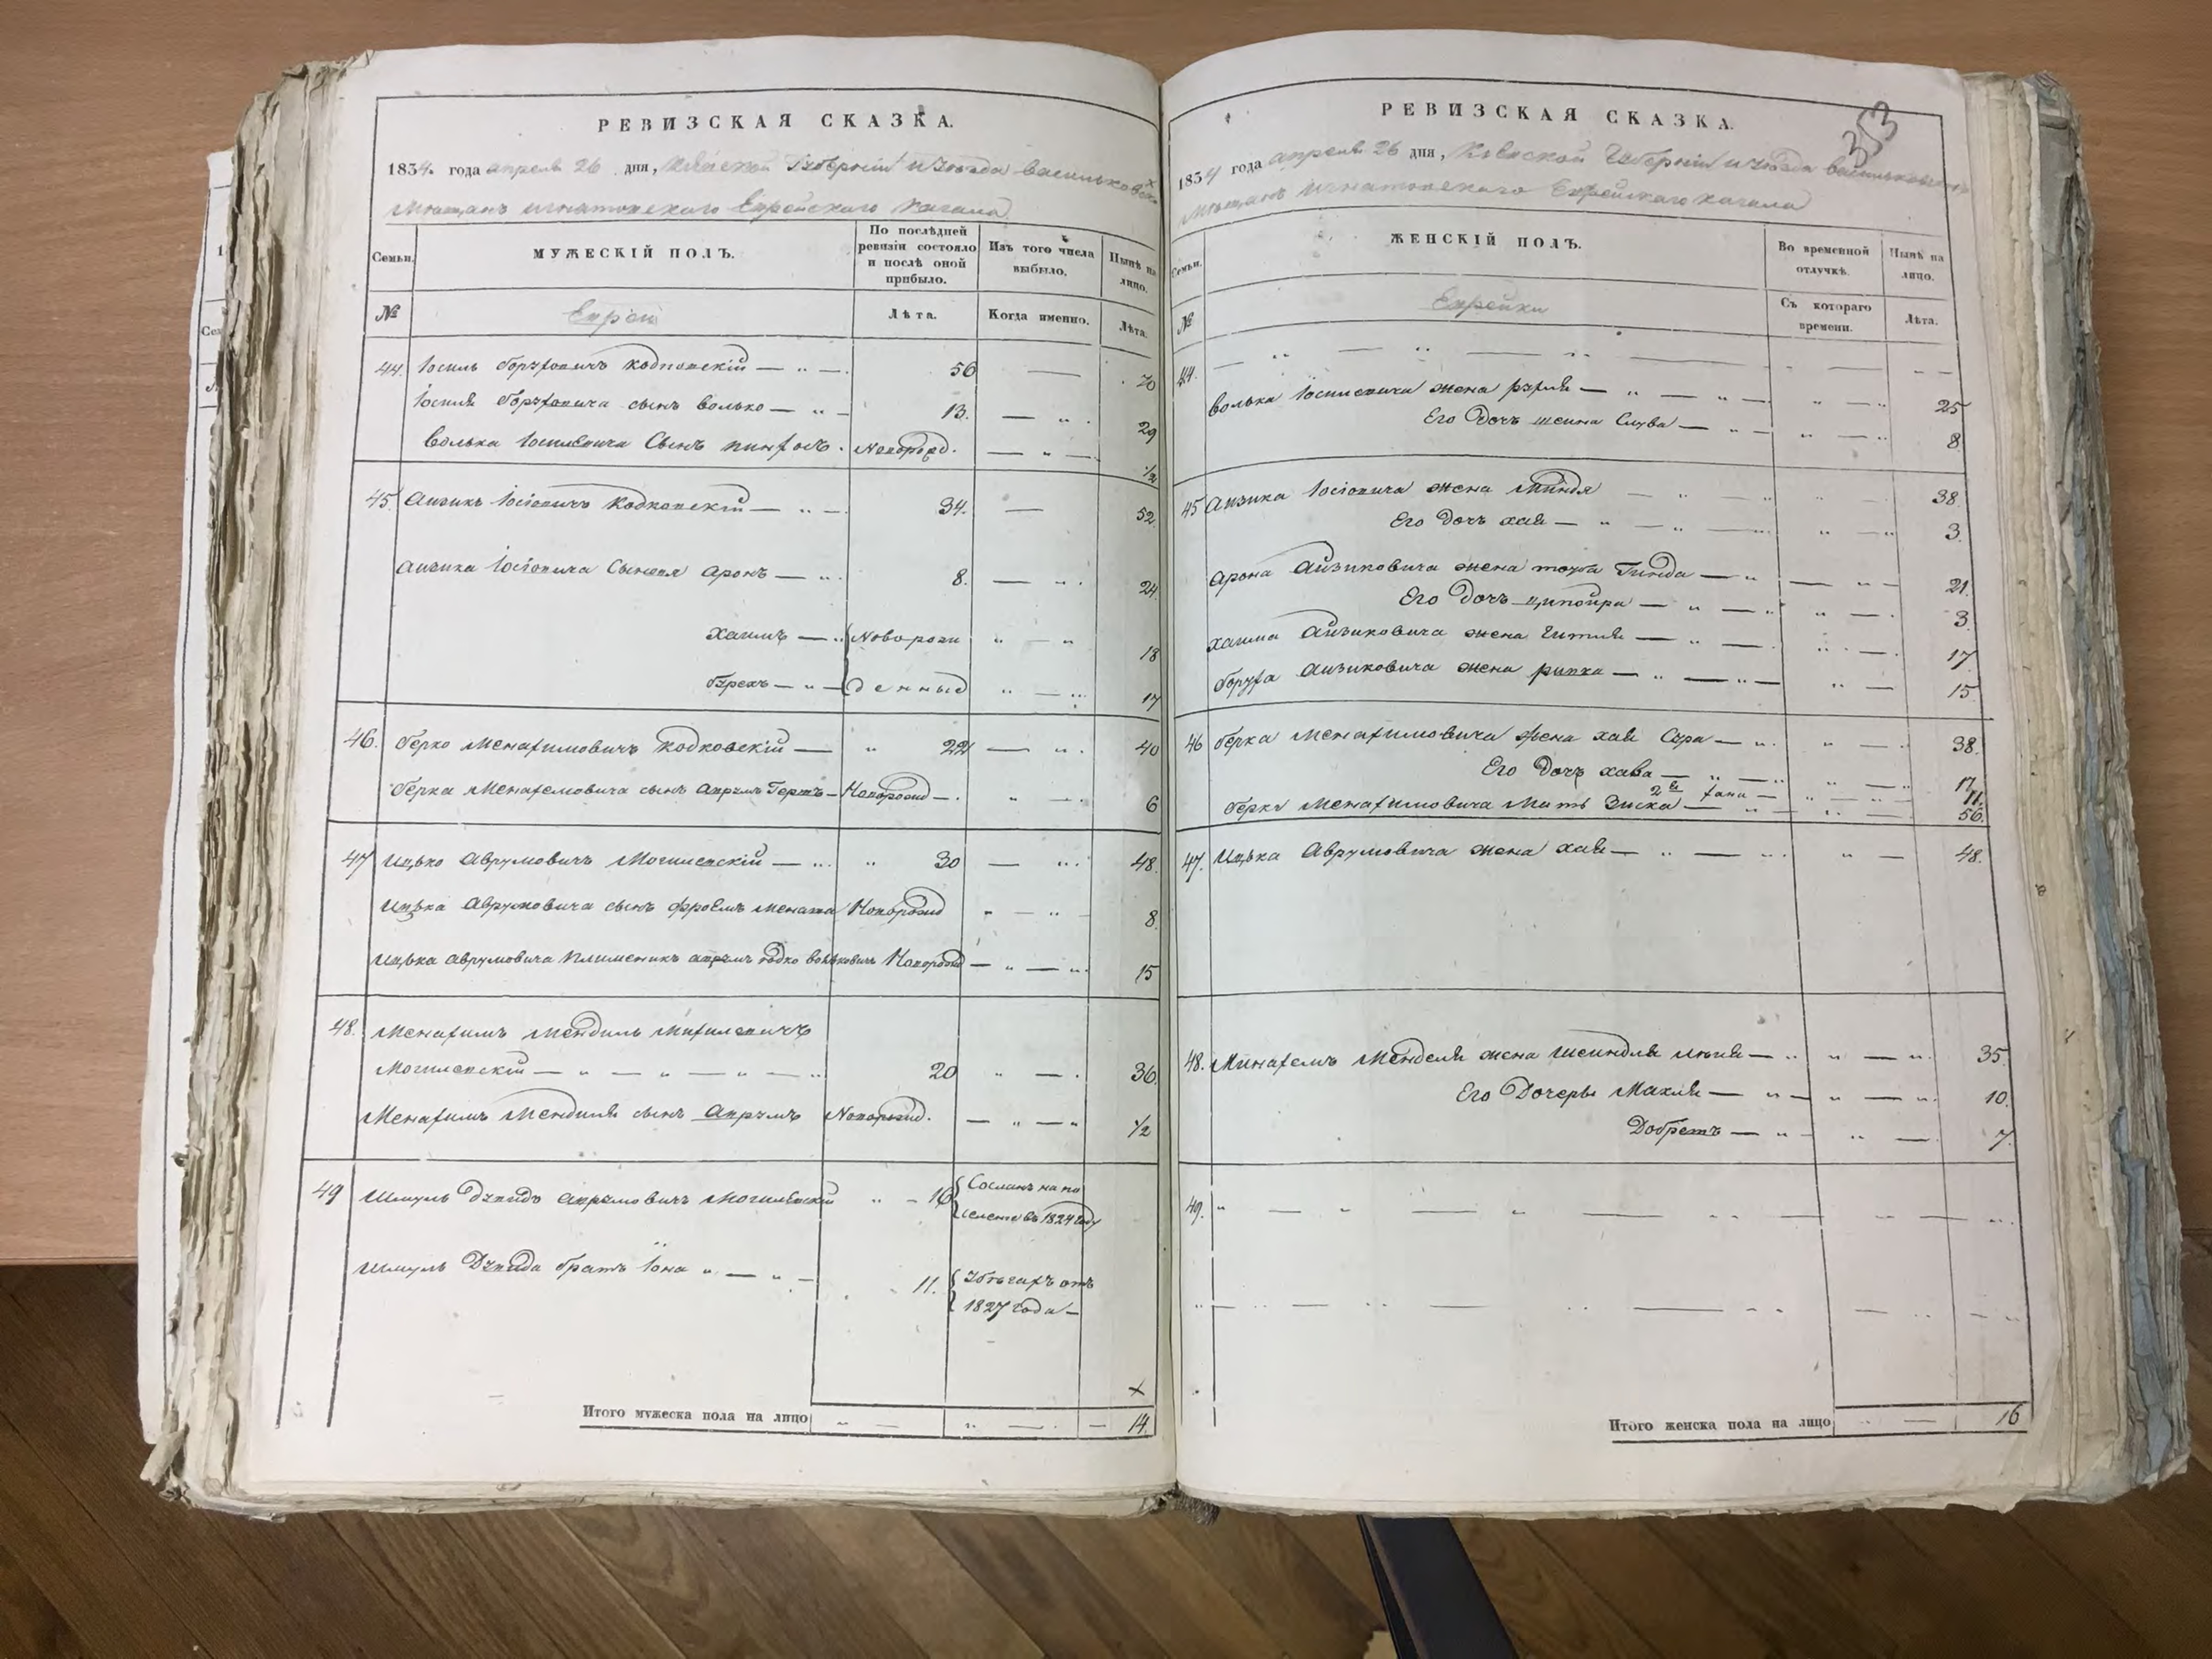 РЕВИЗСКАЯ СКАЗКА.
1834. года апреля 26 дня, Кіевской Губерніи и уѣзда васильковскихъ
мѣщанъ игнатовскаго Еврейскаго кагала
Семьи.
МУЖЕСКІЙ ПОЛЪ.
По послѣдней ревизіи состояло и послѣ оной прибыло.
Изъ того числа выбыло.
Нынѣ на лицо.
№
Евреи
Лѣта.
Когда именно.
Лѣта.
44. Іосиль борухов­ичъ кодковскій — 56 — 70
Іосиля боруховича сынъ волько — 13. — 29
волька Іосилевича Сынъ пинхосъ. Новорожд. — 1/2
45. Аизикъ Іосіовичъ Кодковскій — 34. — 52.
Аизика Іосіовича Сыновя Аронъ — 8. — 24.
хаимъ — Новорож 18
борехъ — денные 17
46. берко Менахимовичъ Кодковскій — 22 — 40
берка Менахемовича сынъ Аврумъ Гершъ — Новорожд — 6
47 Ицько Аврумовичъ Могилевскій — 30 — 48.
Ицька Аврумовича сынъ фроемъ Менаша Новорожд — 8.
Ицька Аврумовича племеникъ аврумъ юдко волковичъ Новорожд — 15
48. Менахимъ Мендиль Михилевичъ
Могилевскій — 20 — 36.
Менахимъ Мендиля сынъ Аврумъ Новорожд. — 1/2
49 Шмуль Дувидъ Аврумовичъ Могилевскій — 16 Сосланъ на по
селеніе въ 1824 году
Шмуль Дувида братъ Іона — 11. Въ бегахъ отъ
1827 года —
Итого мужеска пола на лицо — 14.
РЕВИЗСКАЯ СКАЗКА.
313
1834 года апреля 26 дня, Кіевской Губерніи и уѣзда васильковскихъ
мѣщанъ игнатовскаго Еврейскаго кагала
Семьи.
ЖЕНСКІЙ ПОЛЪ.
Во временной отлучкѣ.
Нынѣ на лицо.
№
Еврейки
Съ котораго времени.
Лѣта.
44.
Волька Іосилевича жена рухля — 25
Его Дочъ шеина Слува — 8
45 Аизика Іосіовича жена Миндя — 38.
Его Дочъ хая — 3.
Арона Айзиковича жена тоуба Гинда — 21.
Его Дочъ ципойра — 3.
хаима Айзиковича жена Гитля — 17
боруха Аизиковича жена ривка — 15
46 берка Менахимовича жена хая Сура — 38.
Его Дочъ хава — 17
2я хана — 11.
берка Менахимовича Мать Зиска — 56.
47. Ицька Аврумовича жена хая — 48.
48. Минахемъ Менделя жена шеиндля — 35.
Его Дочеры Махля — 10.
Добретъ — 7.
49.
Итого женска пола на лицо — 16